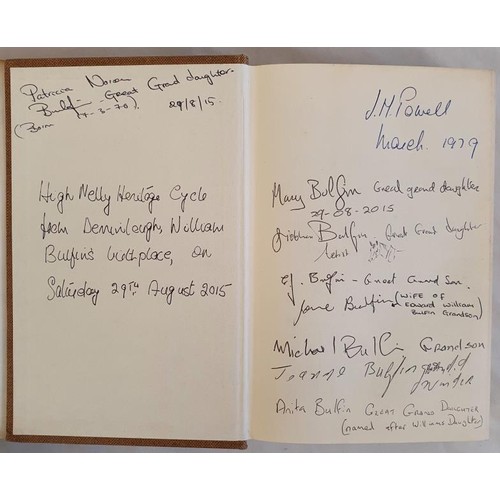 Patricia Noreen
Bulfin - Great Grand daughter.
(Born 4-3-70). 29/8/15.
High Nelly Heritage Cycle
from Derrinlough, William
Bulfin's birthplace, on
Saturday 29th August 2015
J.M. Powell
March. 1979
Mary Bulfin Great grand daughter
29-08-2015
Siobhan Bulfin Great Grand daughter
Artist
EJ. Bulfin - Great Grand Son.
Jane Bulfin (WIFE OF
Edward William
Bulfin Grandson)
Michael Bulfin Grandson
Jeanne Bulfin
Anita Bulfin GREAT GRAND DAUGHTER
(named after Williams Daughter)